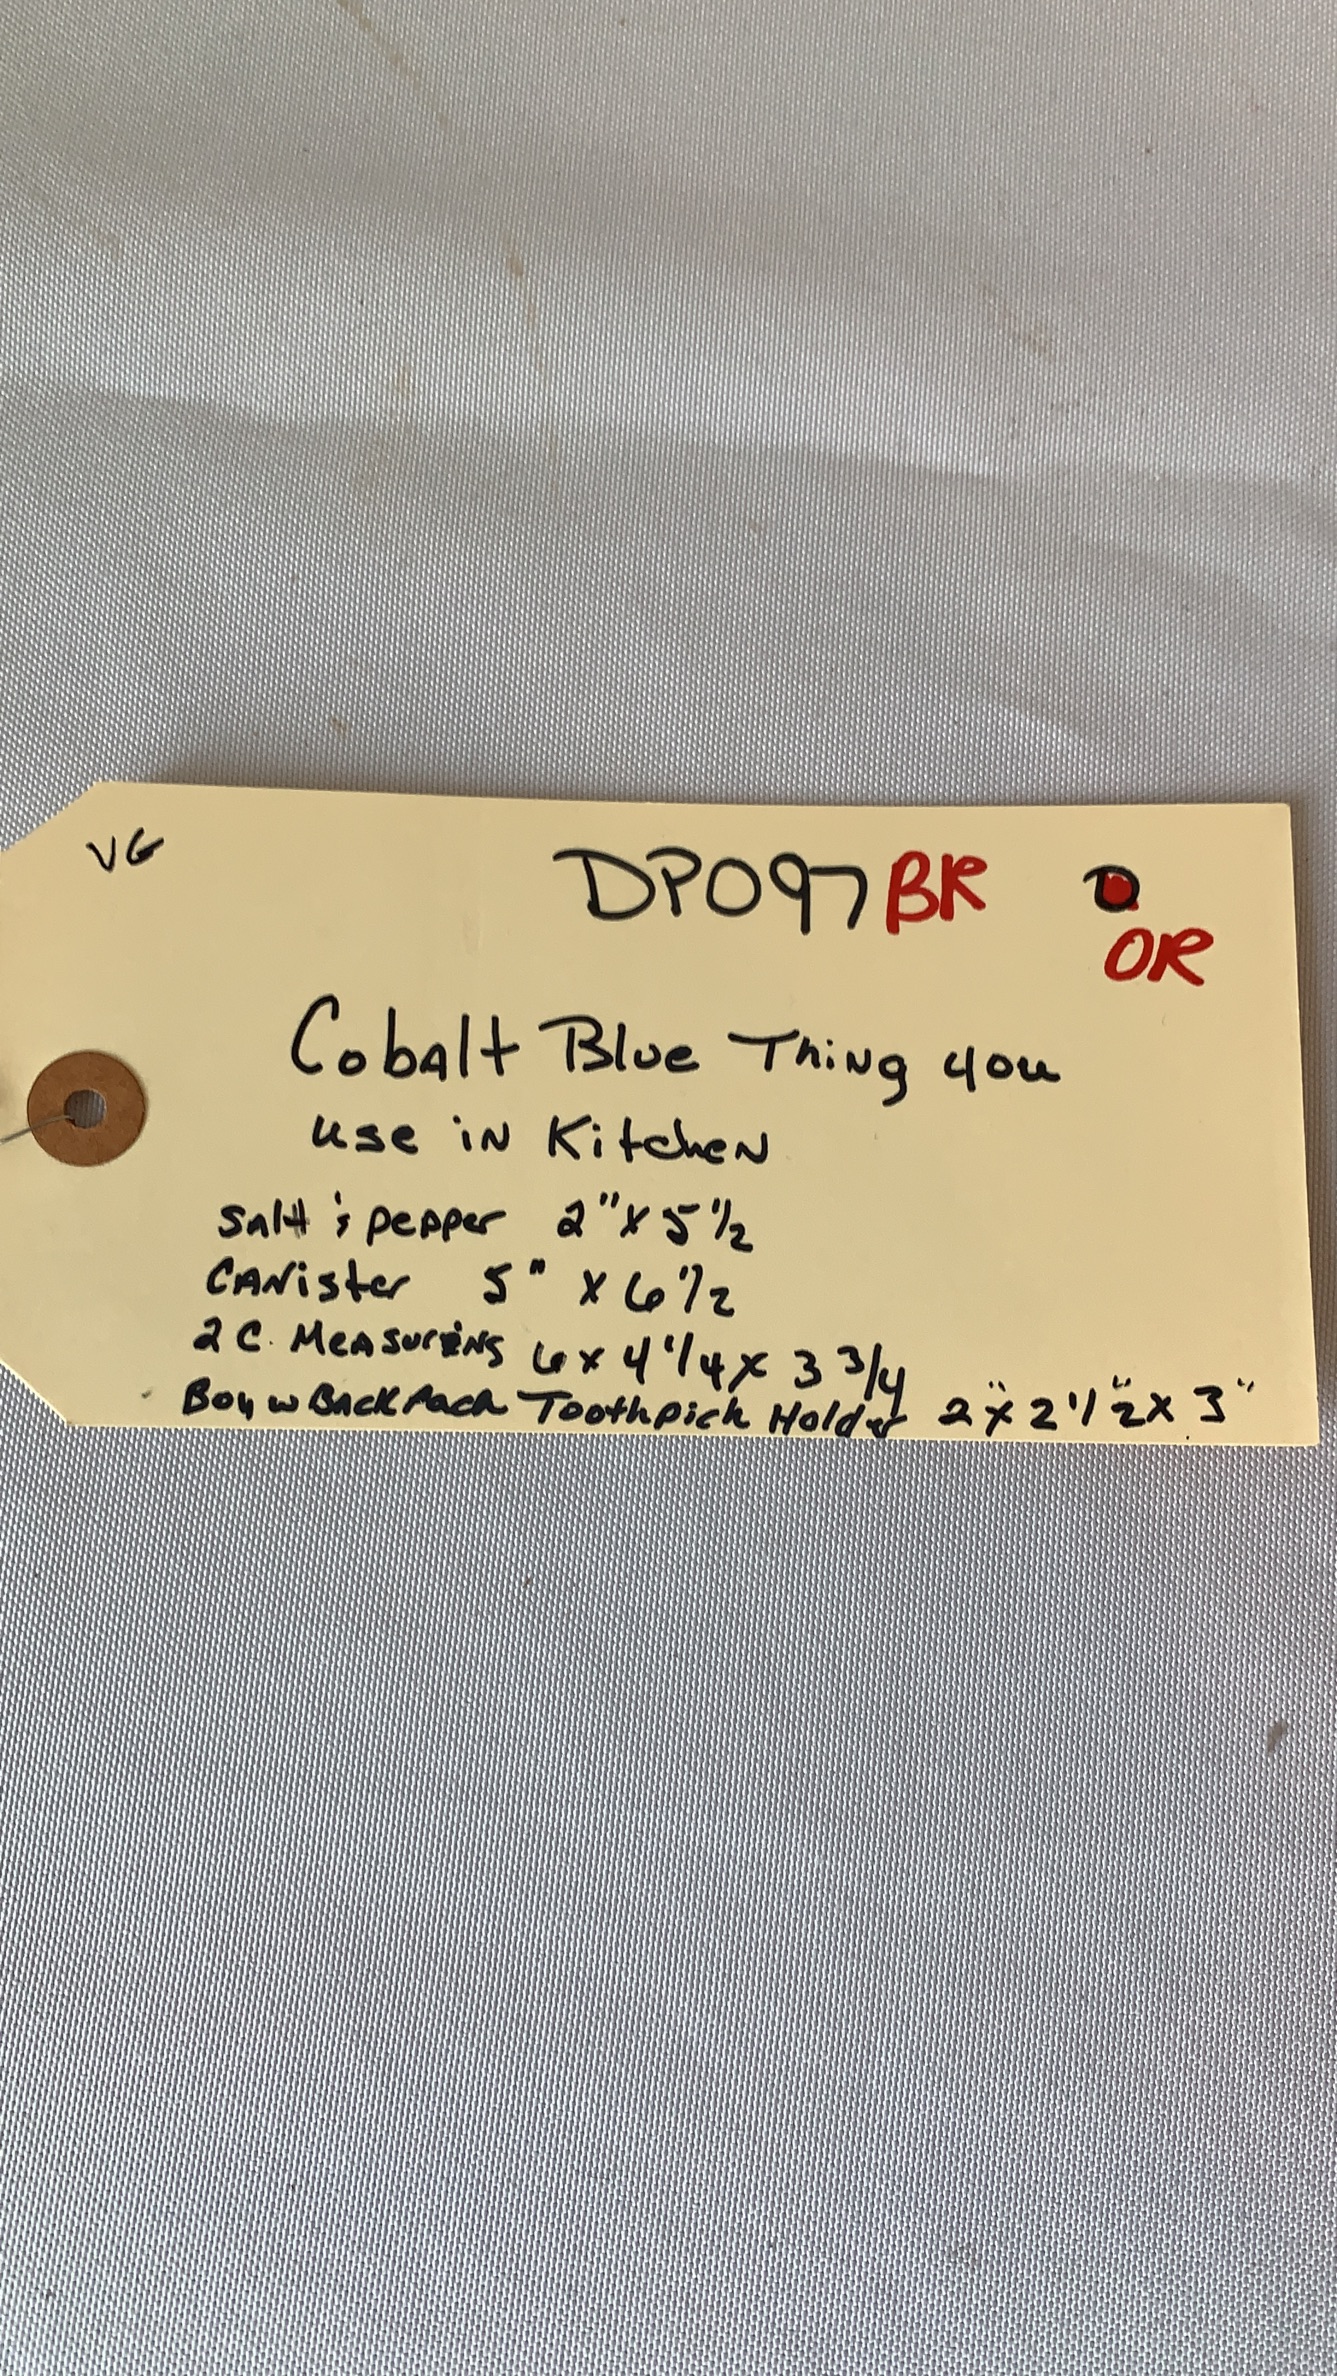 VG
DP097BR D
OR
Cobalt Blue Thing you
use in Kitchen
Salt & pepper 2" x 5 1/2
CANister 5" x 6 1/2
2 C. Measuring 6 x 4 1/4 x 3 3/4
Boy w BackPack Toothpick Holder 2" x 2 1/2" x 3"